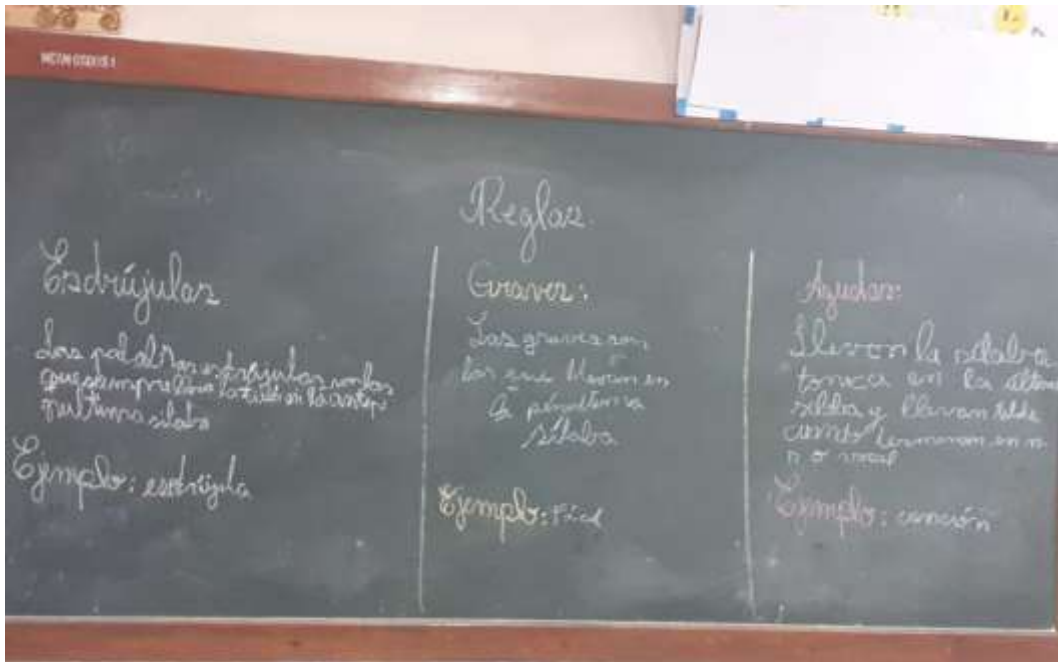 Reglas
Esdrújulas
Las palabras esdrújulas son las
que siempre la tilde en la antep
nultima silaba
Ejemplo: esdrújula
Graves:
Las graves son
las que llevan en
la penúltima
sílaba
Ejemplo:
Agudas:
Llevan la sílaba
tonica en la última
silaba y llevan tilde
cuando terminan en n
o vocal
Ejemplo: canción